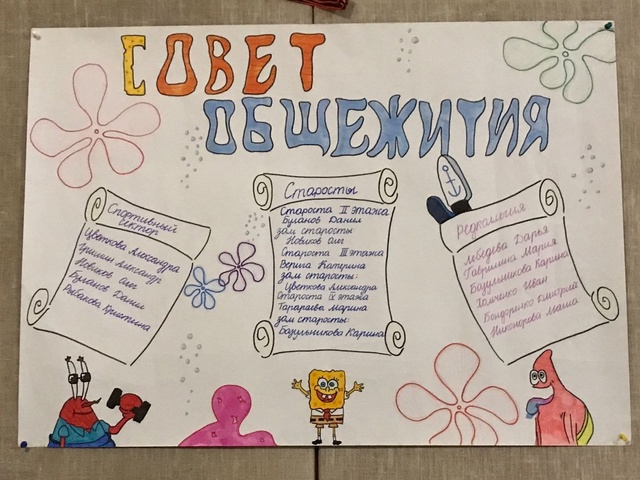 СОВЕТ
ОБЩЕЖИТИЯ
Спортивный
сектор
Цветкова Александра
Гришин Александр
Новиков Олег
Буланов Данил
Рыбакова Кристина
Старосты
Староста II этажа
Буланов Данил
зам старосты
Новиков Олег
Староста III этажа
Верига Катерина
зам старосты:
Цветкова Александра
Староста IV этажа
Тараева Марина
зам старосты:
Базульникова Карина
Редколлегия
Лебедева Дарья
Гаврилина Мария
Базульникова Карина
Хомченко Иван
Бондаренко Дмитрий
Никонорова Маша